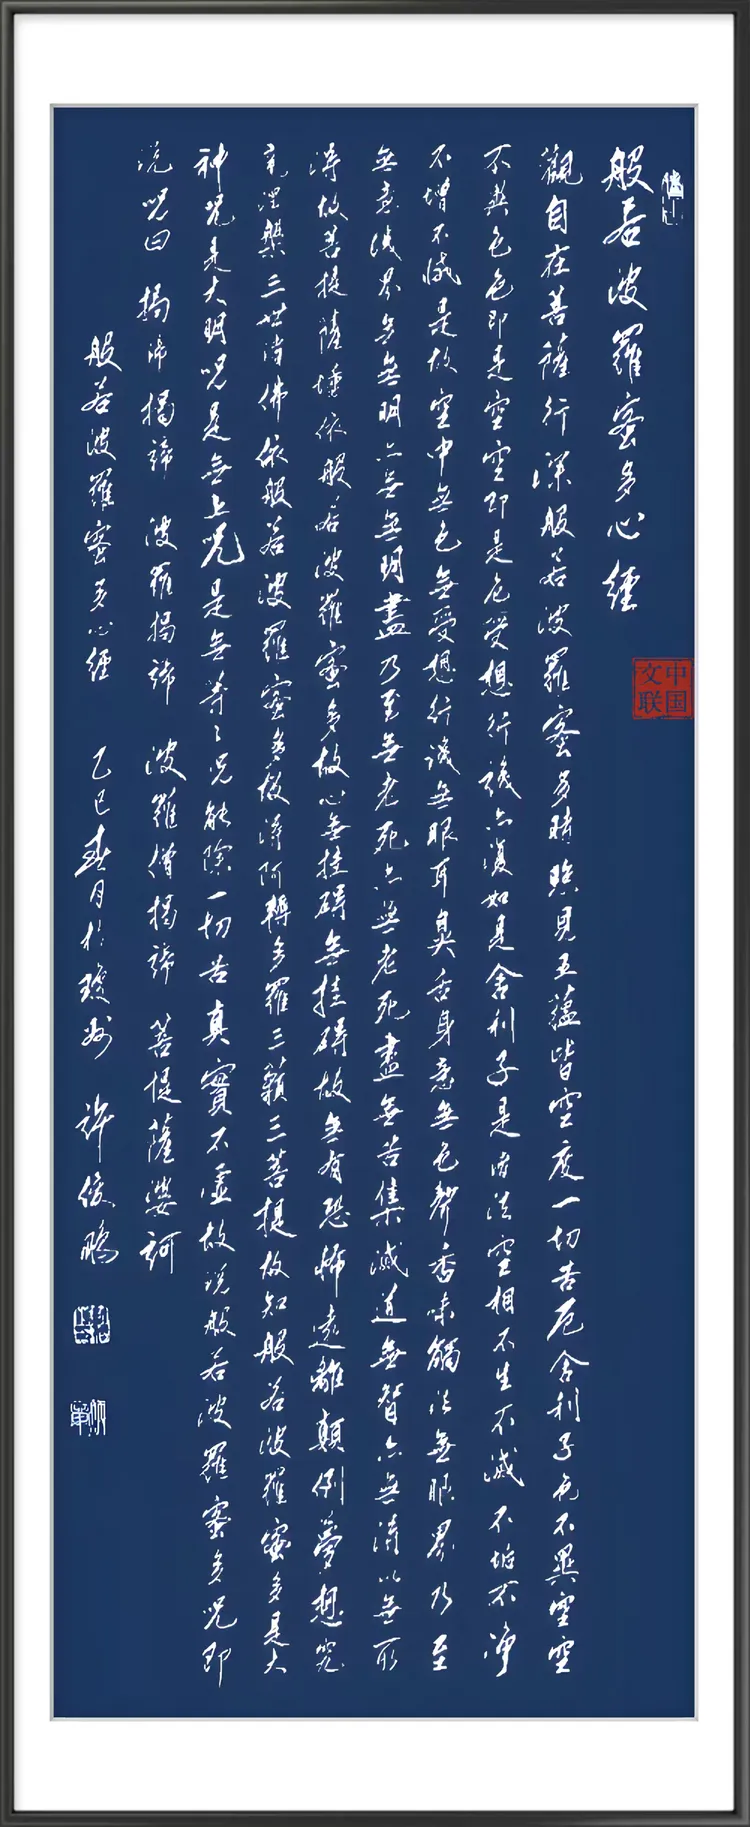 般若波羅蜜多心經
中国文联
觀自在菩薩行深般若波羅蜜多時照見五蘊皆空度一切苦厄舍利子色不異空空
不異色色即是空空即是色受想行識亦復如是舍利子是諸法空相不生不滅不垢不净
不增不減是故空中無色無受想行識無眼耳鼻舌身意無色聲香味觸法無眼界乃至
無意識界無無明亦無無明盡乃至無老死亦無老死盡無苦集滅道無智亦無得以無所
得故菩提薩埵依般若波羅蜜多故心無挂碍無挂碍故無有恐怖遠離顛倒夢想究
竟涅槃三世諸佛依般若波羅蜜多故得阿耨多羅三藐三菩提故知般若波羅蜜多是大
神呪是大明呪是無上呪是無等々呪能除一切苦真實不虛故說般若波羅蜜多呪即
說呪曰 揭諦揭諦 波羅揭諦 波羅僧揭諦 菩提薩婆訶
般若波羅蜜多心經 乙巳春月於瓊州 許俊鵬